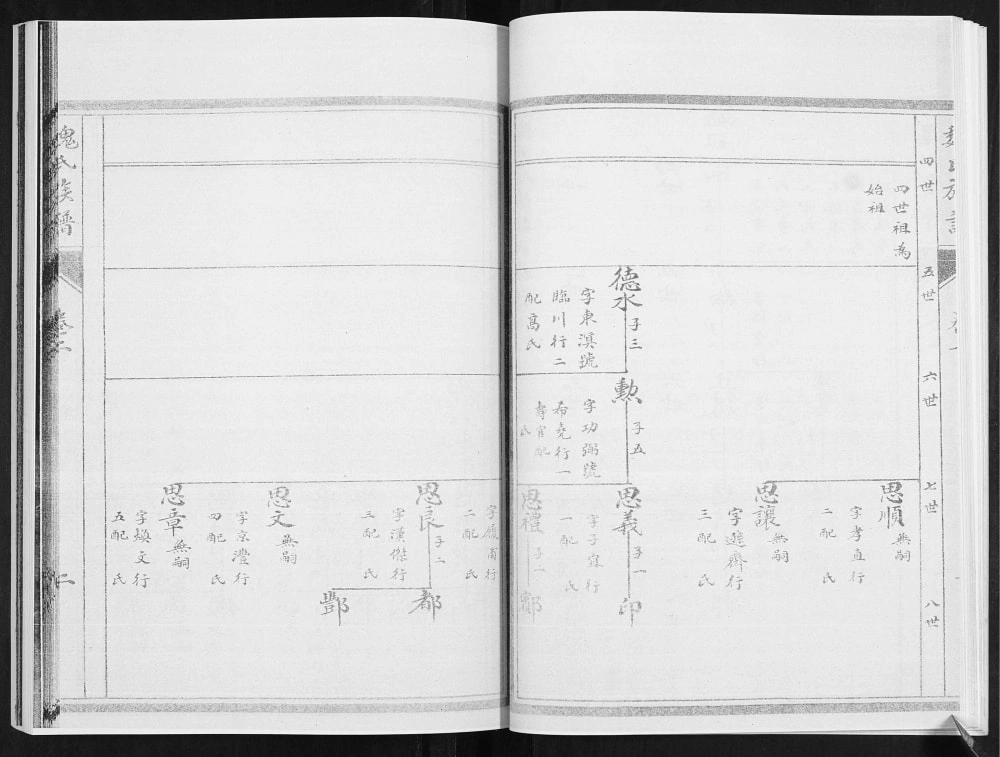 四世
五世
六世
七世
八世
四世祖為
始祖
德水
子三
字東溟號
臨川行二
配高氏
勲
子五
字功弼號
希堯行一
壽官配
氏
思順
無嗣
字孝直行
二配 氏
思讓
無嗣
字遜齋行
三配 氏
思義
子一
字子宜行
一配 氏
卬
思禮
子一
字履甫行
二配 氏
思良
子二
字漢傑行
三配 氏
都
酆
思文
無嗣
字京澧行
四配 氏
思章
無嗣
字煥文行
五配 氏
魏氏族譜
卷二
二